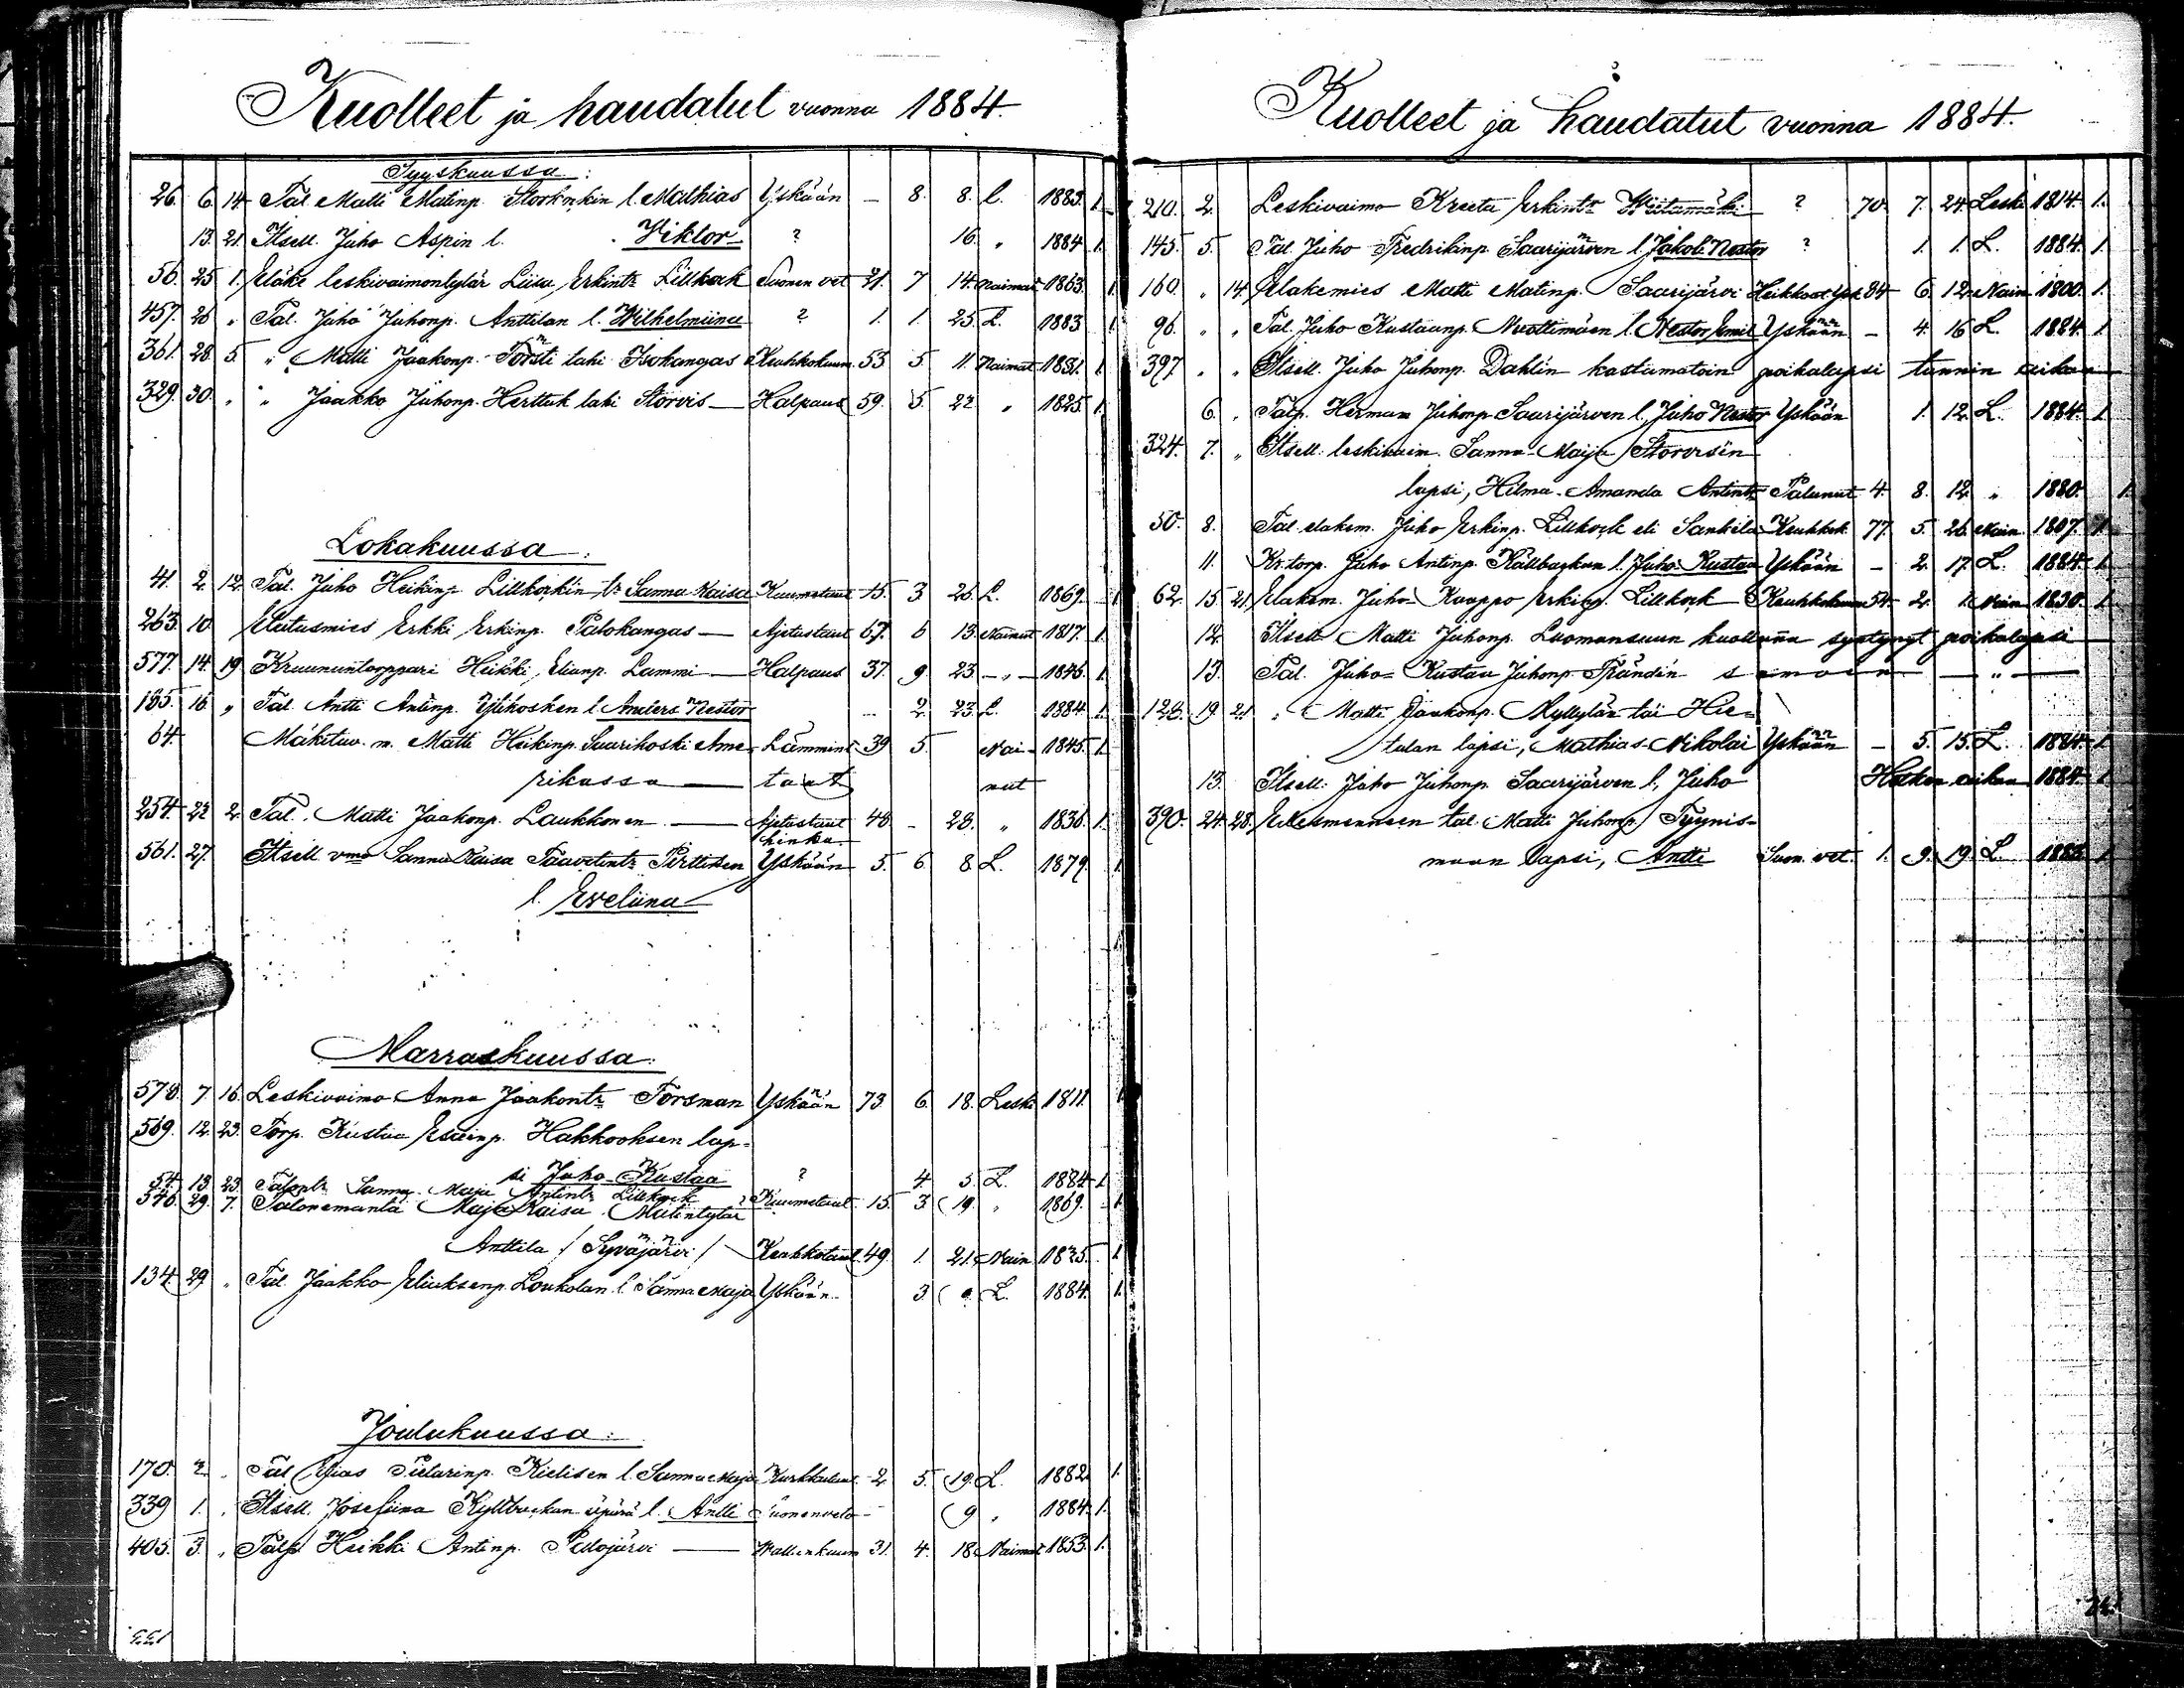 Kuolleet ja haudatut vuonna 1884.
Syyskuussa:
26. 6. 14 Tal. Matti Matinp. Storkorkin l. Mathias Yskään — 8. 8. L. 1883. 1.
13. 21. Itsell. Juho Aspin l. Viktor ? 16. „ 1884 1.
56. 25 1. Eläke leskivaimontytär Liisa Erkintr. Lillkork Suonen vet 21. 7 14. Naimat. 1863. 1.
457. 26 „ Tal. Juho Juhonp. Anttilan l. Wilhelmiina ? 1. 1. 25. L. 1883 1.
361. 28. 5. „ Matti Jaakonp. Torsti lahi Isokangas Keuhkokuum. 53 5 11. Naimat 1831. 1
329. 30. „ „ Jaakko Juhonp. Herttuk lahi Storvis — Halpaus 59. 5. 22 „ 1825. 1.
Lokakuussa:
41 2. 12. Tal. Juho Heikinp. Lillkorkin tr Sanna Kaisa Kuumetaut 15. 3 26. L. 1869. 1
263. 10 Elatusmies Erkki Erkinp. Palokangas — Ajetustaut 67. 6 13. Naimat 1817. 1.
577. 14. 19 Kruununtorppari Heikki Elianp. Lammi — Halpaus 37. 9. 23 — „ — 1846. 1.
185. 16 „ Tal. Antti Antinp. Ylikosken l. Anders Nestor 2. 23. L. 1884 1.
64. Mäkituv. m. Matti Heikinp. Suurikoski Ame- Lämmin- 39 5. Nai- 1845. 1.
rikassa — taut mat
254. 22 2. Tal. Matti Jaakonp. Laukkonen — Ajetustaut 48 — 28. „ 1836. 1.
561. 27. Itsell vmo Sanna Kaisa Taavetintr. Pirttisen Yskään 5. 6 8. L. 1879. 1.
l. Eveliina
Marraskuussa:
578. 7. 16. Leskivaimo Anna Jaakontr. Forsman Yskään 73 6. 18. Leski 1811. 1
569. 12. 23. Torp. Kustaa Esainp. Hakkooksen lap-
si Juho Kustaa ? 4. 5. L. 1884 1
54. 13. 23. Talontr. Sanna Maija Antintr. Lillkork Kuumetaut. 15. 3 19. „ 1869. 1
546. 29. 7. Talonemäntä Maija Kaisa Matintytär
Anttila / Syväjärvi / Keuhkotaut. 49. 1. 21. Nain. 1835. 1
134. 29 „ Tal. Jaakko Eliaksenp. Loukolan l. Sanna Maja Yskään 3 L. 1884. 1.
Joulukuussa:
170. 2. „ Tal. Elias Pietarinp. Kielisen l. Sanna Maja Kurkkutaut 2 5. 19. L. 1882. 1.
339 1. „ Itsell. Josefiina äpärä l. Antti Suonenveto 9 „ 1884. 1.
405. 3. „ Talp. Heikki Antinp. Palojärvi — 31. 4. 18. Naimat 1853. 1.
Kuolleet ja haudatut vuonna 1884.
210. 2. Leskivaimo Kreeta Erkintr. ? 70 7. 24. Leski 1814. 1.
145. 5. Tal. Juho Fredrikinp. Saarijärven l. Jakob Nestor ? 1. 1. L. 1884. 1.
160. „ 14. Eläkemies Matti Matinp. Saarijärvi Heikkout. Ysk. 84 6. 12. Nain. 1800. 1.
96. „ „ Tal. Juho Kustaanp. l. Nestor Emil Yskään — 4. 16 L. 1884. 1
397. „ „ Itsell. Juho Juhonp. Dahlin kastamatoin poikalapsi tunnin aikan
6. „ Talp. Herman Juhonp. Saarijärven l. Juho Nestor Yskään 1. 12. L. 1884. 1.
324. 7. „ Itsell. leskivaim. Sanna Maija Storvisin
lapsi, Hilma Amanda Antintr. Palanut 4. 8. 12. „ 1880. 1.
50. 8. Tal. eläkem. Juho Erkinp. Lillkork eli Sankila Keuhkok 77. 5. 26. Nain. 1807. 1.
11. Kr. torp. Juho Antinp. Källbackan l. Juho Kustaa Yskään — 2. 17. L. 1884. 1.
62. 15. 21. Eläkem. Juho Kaappo Erkinp. Lillkork Keuhkokuum 54. 2. 1. Nain. 1830. 1.
12. Itsell. Matti Juhonp. Luomansuun kuolluna syntynyt poikalapsi
13. Tal. Juho Kustaa Juhonp. Brändin samoin — „ —
128. 19. 21 „ Matti Jaakonp. Myllylän tai Hie-
talan lapsi, Mathias Nikolai Yskään — 5. 15. L. 1884. 1.
13. Itsell. Juho Juhonp. Saarijärven l. Juho aikan 1884. 1
390. 24. 28. tal. Matti Juhonp. Tyynis-
maan lapsi, Antti Suon. vet. 1. 9. 19. L. 1.